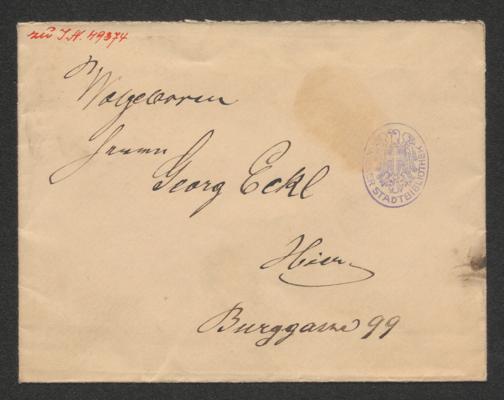 zu I.N. 49374
Wolgeboren
Herrn
Georg Eckl
Hier
Burggasse 99
ER STADTBIBLIOTHEK